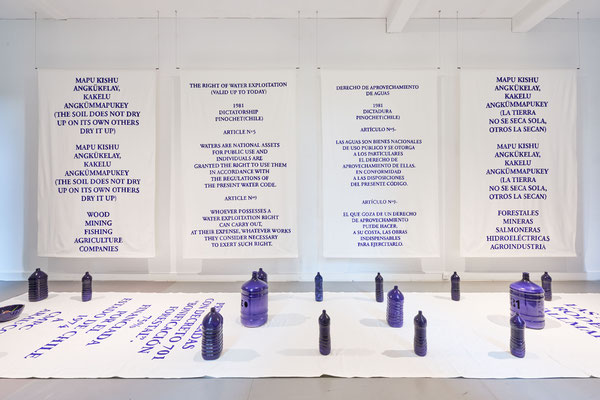 MAPU KISHU
ANGKÜKELAY,
KAKELU
ANGKÜMMAPUKEY
(THE SOIL DOES NOT DRY
UP ON ITS OWN OTHERS
DRY IT UP)
MAPU KISHU
ANGKÜKELAY,
KAKELU
ANGKÜMMAPUKEY
(THE SOIL DOES NOT DRY
UP ON ITS OWN OTHERS
DRY IT UP)
WOOD
MINING
FISHING
AGRICULTURE
COMPANIES
THE RIGHT OF WATER EXPLOITATION
(VALID UP TO TODAY)
1981
DICTATORSHIP
PINOCHET(CHILE)
ARTICLE Nº5
WATERS ARE NATIONAL ASSETS
FOR PUBLIC USE AND
INDIVIDUALS ARE
GRANTED THE RIGHT TO USE THEM
IN ACCORDANCE WITH
THE REGULATIONS OF
THE PRESENT WATER CODE.
ARTICLE Nº9
WHOEVER POSSESSES A
WATER EXPLOITATION RIGHT
CAN CARRY OUT,
AT THEIR EXPENSE, WHATEVER WORKS
THEY CONSIDER NECESSARY
TO EXERT SUCH RIGHT.
DERECHO DE APROVECHAMIENTO
DE AGUAS
1981
DICTADURA
PINOCHET(CHILE)
ARTÍCULO Nº5.
LAS AGUAS SON BIENES NACIONALES
DE USO PÚBLICO Y SE OTORGA
A LOS PARTICULARES
EL DERECHO DE
APROVECHAMIENTO DE ELLAS,
EN CONFORMIDAD
A LAS DISPOSICIONES
DEL PRESENTE CÓDIGO.
ARTÍCULO Nº9.
EL QUE GOZA DE UN DERECHO
DE APROVECHAMIENTO
PUEDE HACER,
A SU COSTA, LAS OBRAS
INDISPENSABLES
PARA EJERCITARLO.
MAPU KISHU
ANGKÜKELAY,
KAKELU
ANGKÜMMAPUKEY
(LA TIERRA
NO SE SECA SOLA,
OTROS LA SECAN)
MAPU KISHU
ANGKÜKELAY,
KAKELU
ANGKÜMMAPUKEY
(LA TIERRA
NO SE SECA SOLA,
OTROS LA SECAN)
FORESTALES
MINERAS
SALMONERAS
HIDROELÉCTRICAS
AGROINDUSTRIA
CON DECRETO 701
BONIFICACIÓN
FORESTAL
75%
FINANCIADA
POR EL
ESTADO
DE CHILE
1974